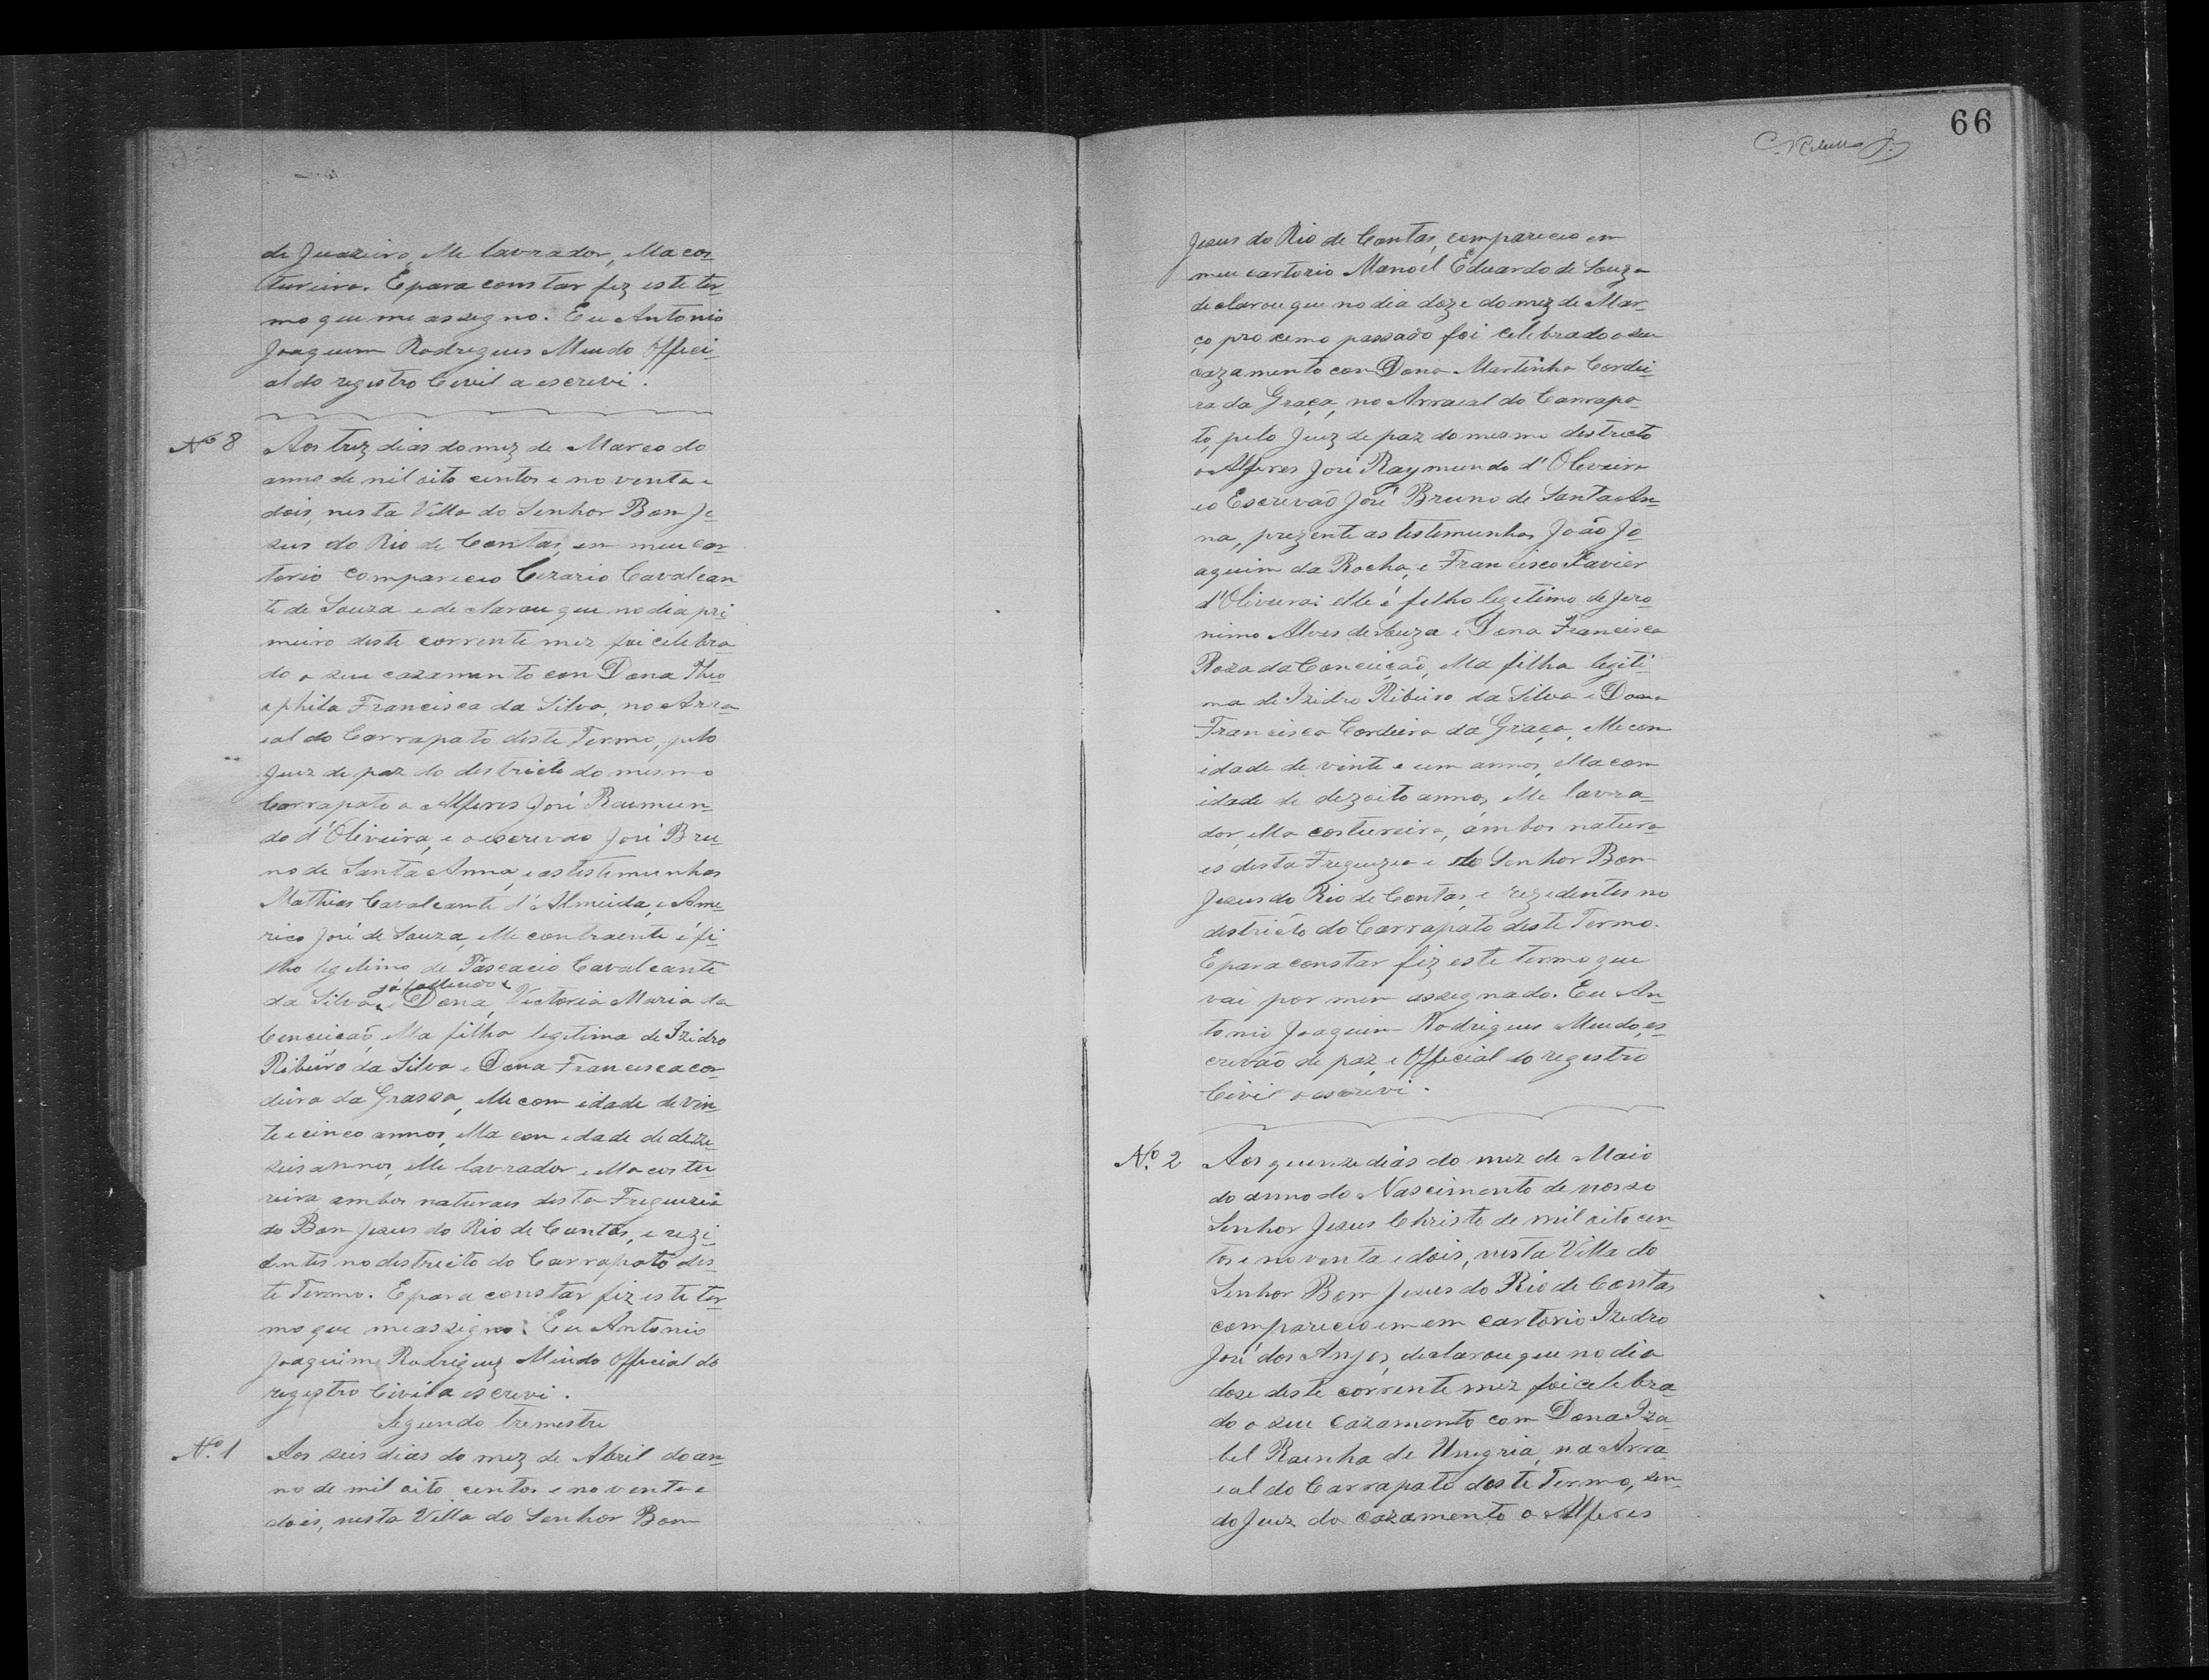 de Juazeiro, elle lavrador, ella cos-
tureira. E para constar fiz este ter-
mo que me assegno. Eu Antonio
Joaquim Rodrigues Mendo Offici-
al do registro Civil a escrevi.
Nº 8 Aos trez dias do mez de Março do
anno de mil oito centos e noventa e
dois, nesta Villa do Senhor Bom Je-
sus do Rio de Contas, em meu car-
torio compareceo Cezario Cavalcan
te de Souza e declarou que no dia pri
meiro deste corrente mez foi celebra-
do o seu cazamento com Dona Theo
ophila Francisca da Silva, no Arra
ial do Carrapato deste Termo, pelo
Juiz de paz do destricto do mesmo
Carrapato o Alferes José Raimun-
do d'Oliveira, e o escrevão José Bru-
no de Santa Anna, e as testemunhas
Mathias Cavalcante d'Almeida, e Ame-
rico José de Souza, elle contraente é fi-
lho legitimo de Pascacio Cavalcante
da Silva já fallecido e Dona Victoria Maria da
Conceicão, ella filha legitima de Izidro
Ribeiro da Silva e Dona Francisca cor-
deira da Grassa, elle com idade de vin-
te e cinco annos, ella com idade de deze-
seis annos, elle lavrador e ella costu-
reira ambos naturaes desta Freguezia
do Bom Jesus do Rio de Contas, e rezi-
dentes no destricto do Carrapato des-
te Termo. E para constar fiz este ter-
mo que me assigno. Eu Antonio
Joaquim Rodriguez Mendo Official do
registro Civil a escrevi.
Segundo tremestre
Nº 1 Aos seis dias do mez de Abril do an-
no de mil oito centos e noventa e
dois, nesta Villa do Senhor Bom
66
Jesus do Rio de Contas, compareceo em
meu cartorio Manoel Eduardo de Souza
declarou que no dia doze do mez de Mar-
ço proximo passado foi celebrado o seu
cazamento com Dona Martinha Cordei-
ra da Graça, no Arraial do Carrapa-
to, pelo Juiz de paz do mesmo destricto
o Alferes José Raymundo d'Oliveira
e o Escrevão José Bruno de Santa An-
na, prezente as testemunhas João Jo-
aquim da Rocha, e Francisco Xavier
d'Oliveirai elle é filho legitimo de Jero-
nimo Alves de Souza e Dona Francisca
Roza da Conceição, ella filha legiti-
ma de Izidro Ribeiro da Silva e Dona
Francisca Cordeira da Graça, elle com
idade de vinte e um annos, ella com
idade de dezoito annos, elle lavra-
dor, ella costureira, ambos natura-
es desta Freguezia e do Senhor Bom
Jesus do Rio de Contas, e rezedentes no
destricto do Carrapato deste Termo.
E para constar fiz este termo que
vai por mim assegnado. Eu An-
tonio Joaquim Rodrigues Mendo, es-
crevão de paz, e Official do registro
Civil o escrevi.
Nº. 2 Aos quinze dias do mez de Maio
do anno do Nascimento de nosso
Senhor Jesus Christo de mil oito cen-
tos e noventa e dois, nesta Villa do
Senhor Bom Jesus do Rio de Contas
compareceo em em cartorio Izedro
José dos Anjos, declarou que no dia
dose deste corrente mez foi celebra-
do o seu cazamento com Dona Iza-
bel Rainha de Ungria, na Arra-
ial do Carrapato deste Termo, sen-
do Juiz do cazamento o Alferes